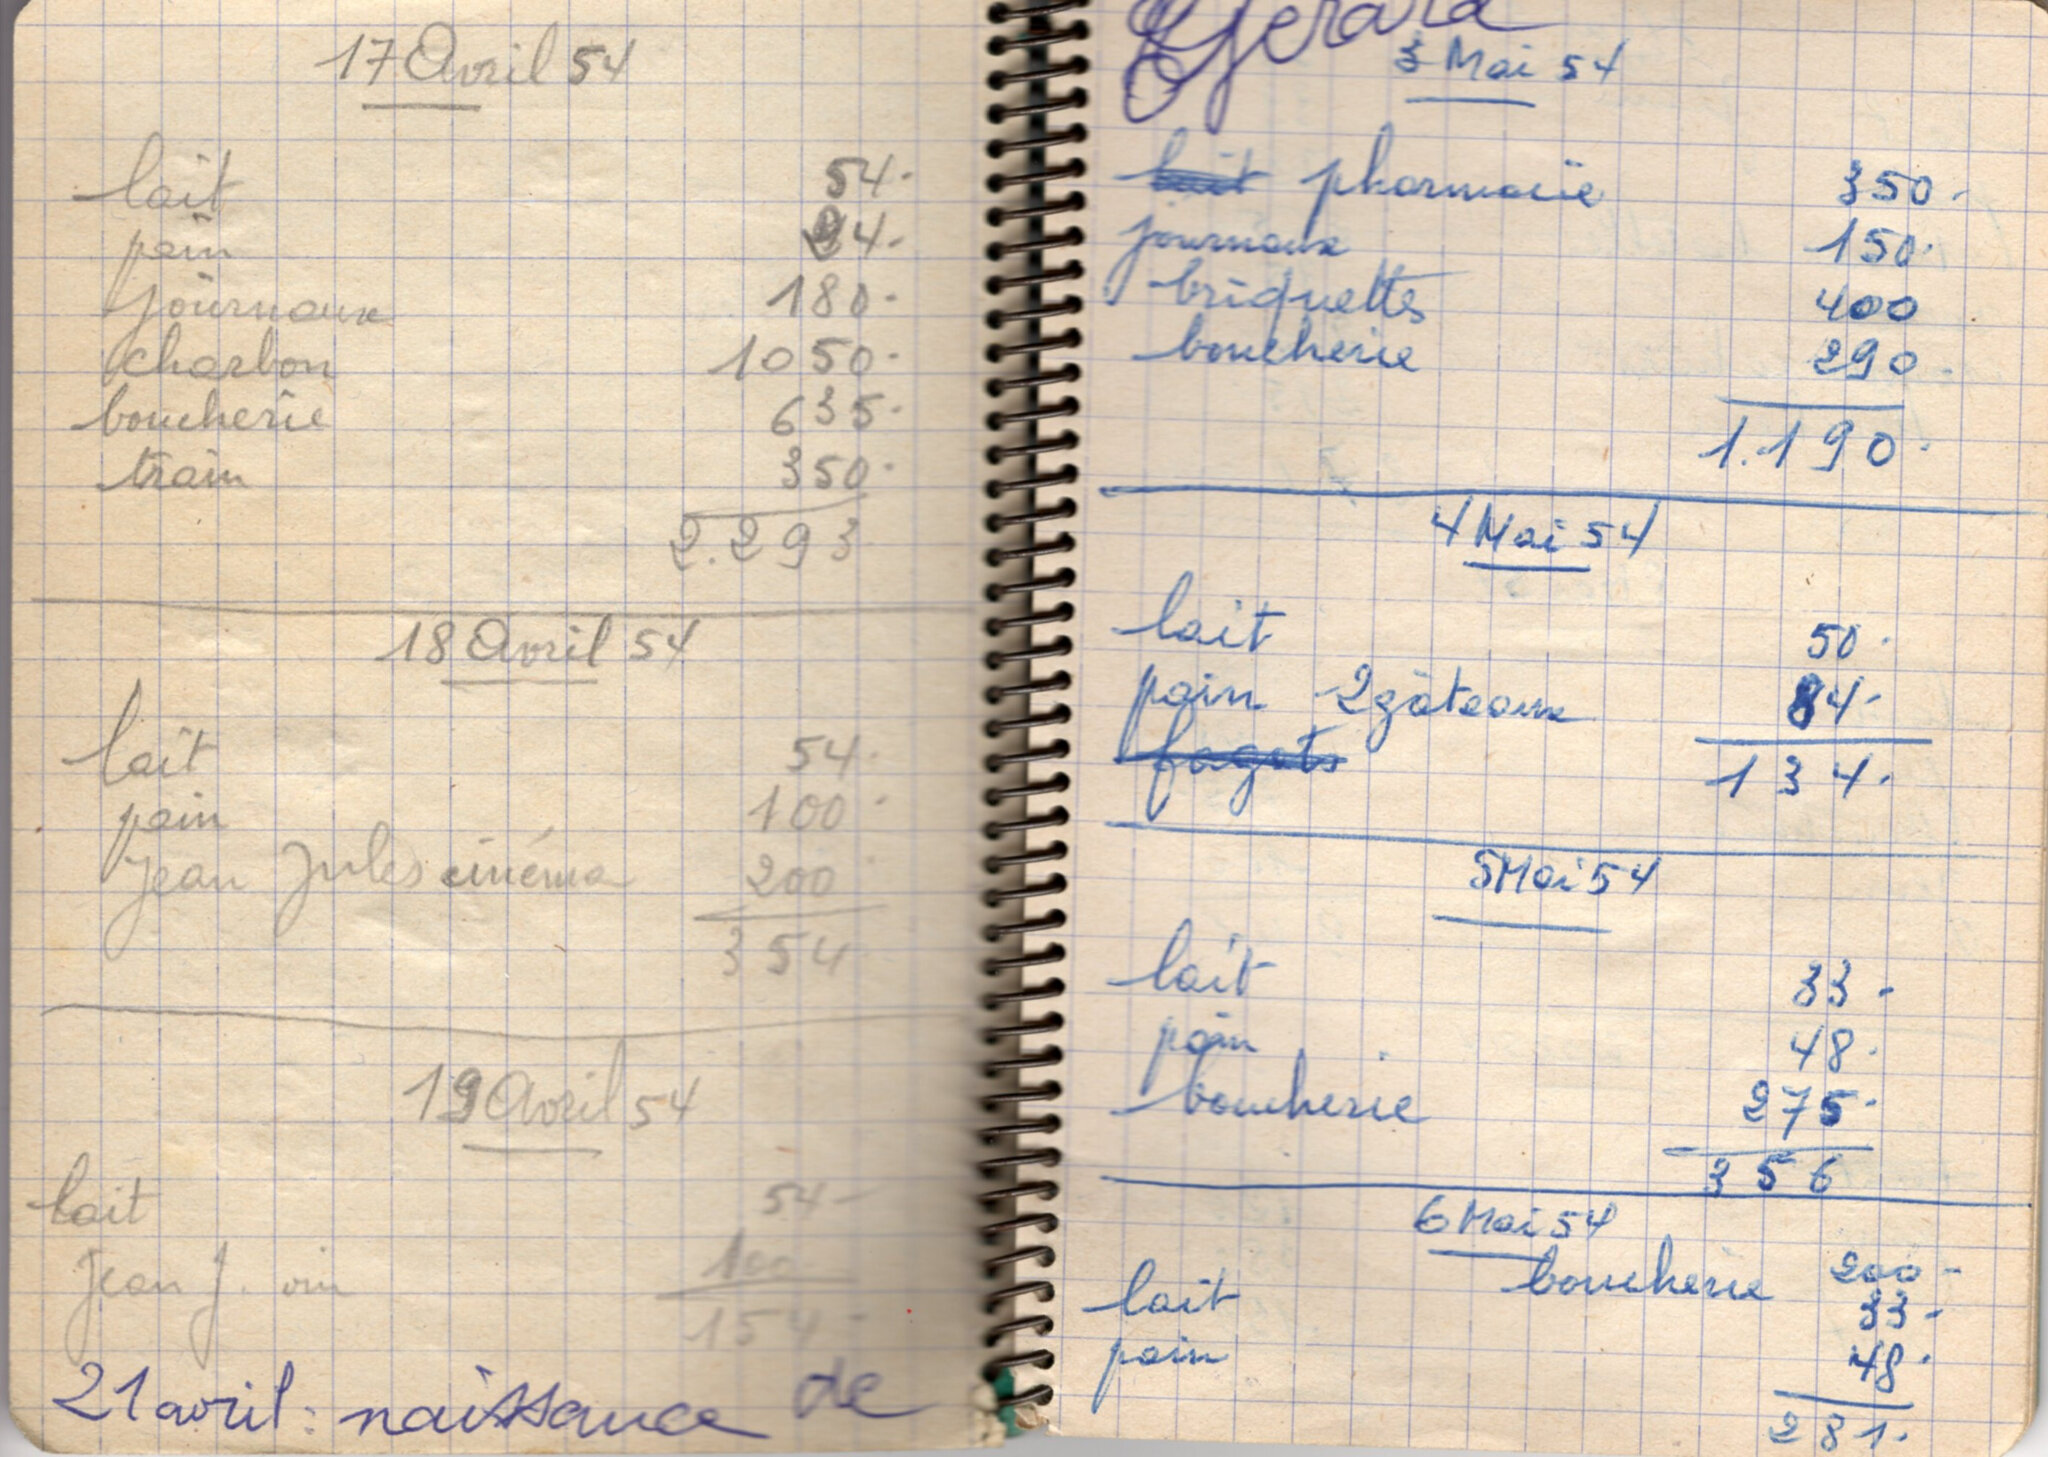 17 Avril 54
lait 54.
pain 24.
journaux 180.
charbon 1050.
boucherie 635.
train 350.
2.293
18 Avril 54
lait 54.
pain 100.
Jean Jules cinéma 200
354
19 Avril 54
lait 54-
Jean J. vin 100
154-
21 avril : naissance de
Gérard
3 Mai 54
lait pharmacie 350.
journaux 150.
briquettes 400
boucherie 290.
1.190.
4 Mai 54
lait 50.
pain 2 gâteaux 84.
fagots
134.
5 Mai 54
lait 33-
pain 48.
boucherie 275.
356
6 Mai 54
boucherie 200-
lait 33-
pain 48.
281.